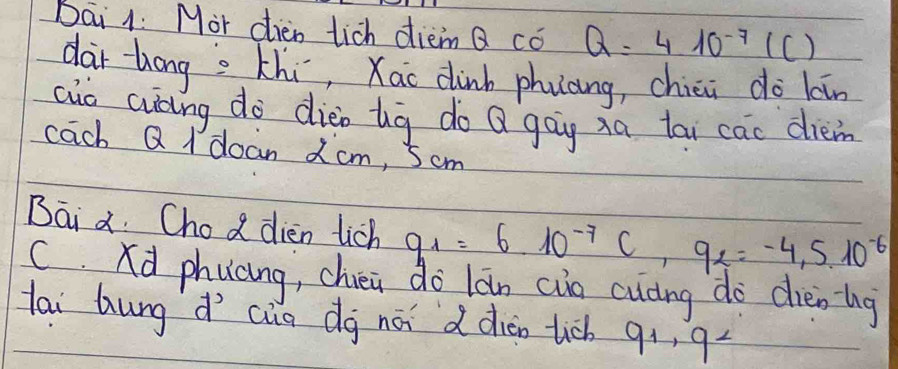 Bài 1: Một điện tích điểm Q có Q = 4 10⁻⁷ (C)
đặt trong o khí, Xác định phương, chiều độ lớn
của cường độ điện tg do Q gây ra tại các điểm
cách Q 1 đoạn 2cm, 5cm
Bài 2. Cho 2 điện tích q₁ = 6 10⁻⁷ C, q₂ = -4,5.10⁻⁶
C. Xđ phương, chiều độ lớn của cường độ điện tg
tại trung đ' của dg nối 2 điện tích q₁, q₂